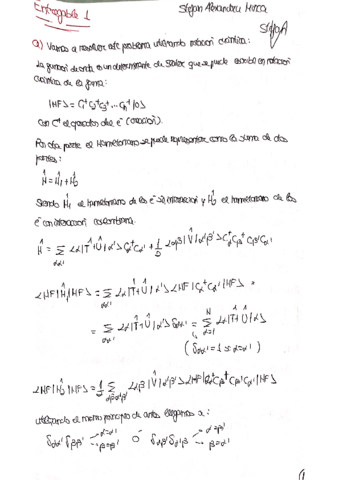 Entregable 1
Stefan Alexandru
a) Vamos a resolver este problema utilizando notación cuántica:
La función de onda es un determinante de Slater que se puede escribir en notación
cuántica de la forma:
|HF> = C₁⁺C₂⁺C₃⁺...Cₙ⁺|0>
Con C⁺ el operador de e⁻ (creación).
Por otra parte el Hamiltoniano se puede representar como la suma de dos
partes:
Ĥ = Ĥ₁ + Ĥ₂
Siendo Ĥ₁ el hamiltoniano de los e⁻ sin interacción y Ĥ₂ el hamiltoniano de los
e⁻ con interacción coulombiana.
Ĥ = Σ_{αα'} <α|T̂+Û|α'> C_α⁺C_α' + 1/2 Σ <αβ|V̂|α'β'> C_α⁺C_β⁺C_β'C_α'
<HF|Ĥ₁|HF> = Σ_{αα'} <α|T̂+Û|α'> <HF|C_α⁺C_α'|HF> =
= Σ_{αα'} <α|T̂+Û|α'> δ_αα' = Σ_{α=1}^N <α|T̂+Û|α>
(δ_αα' = 1 si α=α')
<HF|Ĥ₂|HF> = 1/2 Σ_{αβα'β'} <αβ|V̂|α'β'> <HF|C_α⁺C_β⁺C_β'C_α'|HF>
utilizando el mismo principio de antes llegamos a:
δ_αα' δ_ββ' → α=α' → β=β' ó δ_αβ' δ_α'β → α=β' → β=α'